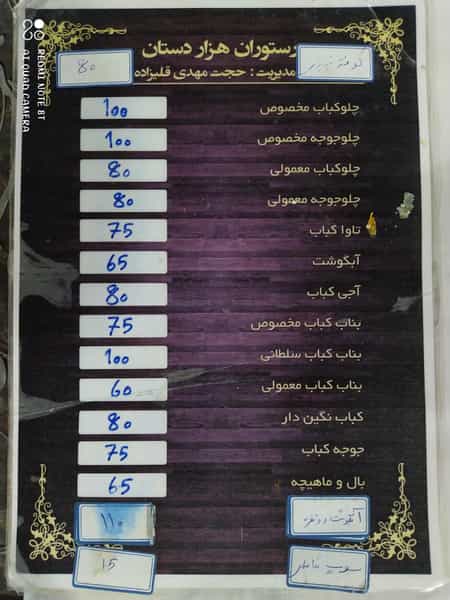 REDMI NOTE 8T
AI QUAD CAMERA
رستوران هزار دستان
مدیریت : حجت مهدی قلیزاده
کوفته تبریزی 80
چلوکباب مخصوص 100
چلوجوجه مخصوص 100
چلوکباب معمولی 80
چلوجوجه معمولی 80
تاوا کباب 75
آبگوشت 65
آجی کباب 80
بناب کباب مخصوص 75
بناب کباب سلطانی 100
بناب کباب معمولی 60
کباب نگین دار 80
جوجه کباب 75
بال و ماهیچه 65
آبگوشت دو نفره ۱۱۰
سوپ 15